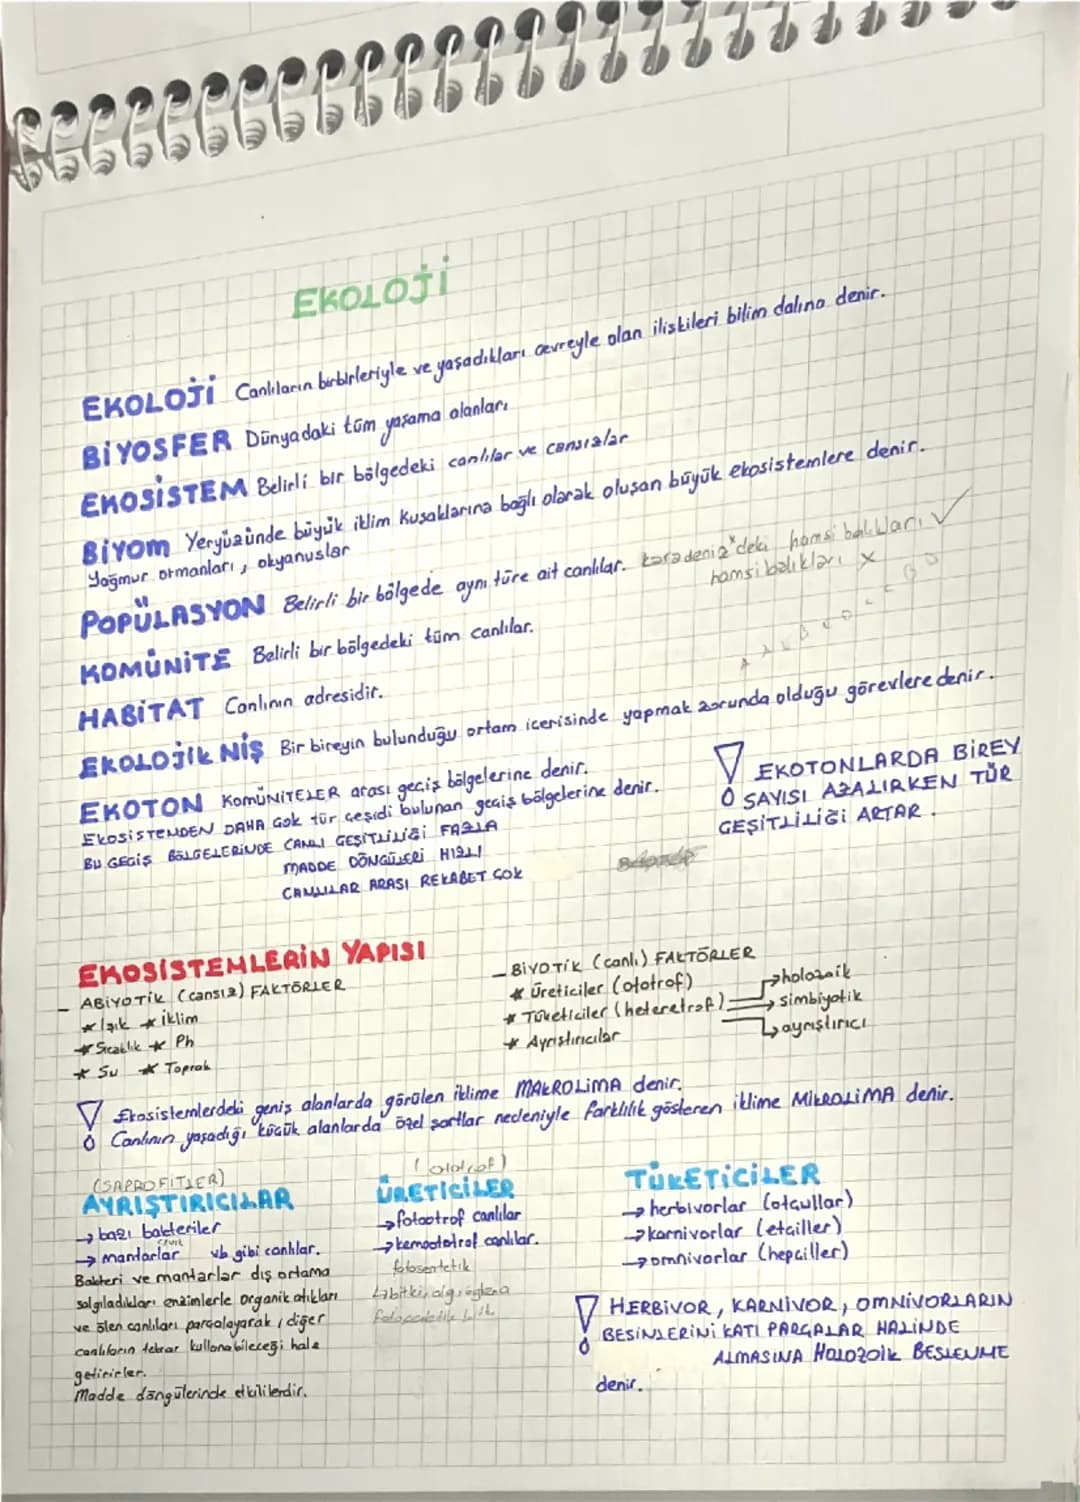 EKOLOJİ
EKOLOJİ Canlıların birbirleriyle ve yaşadıkları çevreyle olan ilişkileri bilim dalına denir.
BİYOSFER Dünyadaki tüm yaşama alanları
EKOSİSTEM Belirli bir bölgedeki canlılar ve cansızlar
BİYOM Yeryüzünde büyük iklim kuşaklarına bağlı olarak oluşan büyük ekosistemlere denir.
Yağmur ormanları, okyanuslar
POPÜLASYON Belirli bir bölgede aynı türe ait canlılar. Karadeniz'deki hamsi balıkları ✓
hamsi balıkları X
KOMÜNİTE Belirli bir bölgedeki tüm canlılar.
HABİTAT Canlının adresidir.
EKOLOJİK NİŞ Bir bireyin bulunduğu ortam içerisinde yapmak zorunda olduğu görevlere denir.
EKOTON KOMÜNİTELER arası geçiş bölgelerine denir.
EKOSİSTEMDEN DAHA çok tür çeşidi bulunan geçiş bölgelerine denir.
BU GEÇİŞ BÖLGELERİNDE CANLI ÇEŞİTLİLİĞİ FAZLA
MADDE DÖNGÜLERİ HIZLI
CANLILAR ARASI REKABET ÇOK
EKOTONLARDA BİREY
SAYISI AZALIRKEN TÜR
ÇEŞİTLİLİĞİ ARTAR.
EKOSİSTEMLERİN YAPISI
- ABİYOTİK (cansız) FAKTÖRLER
* Işık * İklim
* Sıcaklık * Ph
* Su * Toprak
- BİYOTİK (canlı) FAKTÖRLER
* Üreticiler (ototrof)
* Tüketiciler (heteretrof) → holozoik
→ simbiyotik
→ ayrıştırıcı
* Ayrıştırıcılar
Ekosistemlerdeki geniş alanlarda görülen iklime MAKROLİMA denir.
Canlının yaşadığı küçük alanlarda özel şartlar nedeniyle farklılık gösteren iklime MİKROLİMA denir.
(SAPROFİTLER)
AYRIŞTIRICILAR
→ bazı bakteriler
→ mantarlar vb gibi canlılar.
Bakteri ve mantarlar dış ortama
salgıladıkları enzimlerle organik atıkları
ve ölen canlıları parçalayarak, diğer
canlıların tekrar kullanabileceği hale
getirirler.
Madde döngülerinde etkilidir.
(ototrof)
ÜRETİCİLER
→ fotootrof canlılar
→ kemootrof canlılar.
fotosentetik
↳ bitki, alg, öglena
TÜKETİCİLER
→ herbivorlar (otçullar)
→ karnivorlar (etçiller)
→ omnivorlar (hepçiller)
HERBİVOR, KARNİVOR, OMNİVORLARIN
BESİNLERİNİ KATI PARÇALAR HALİNDE
ALMASINA HOLOZOİK BESLENME
denir.